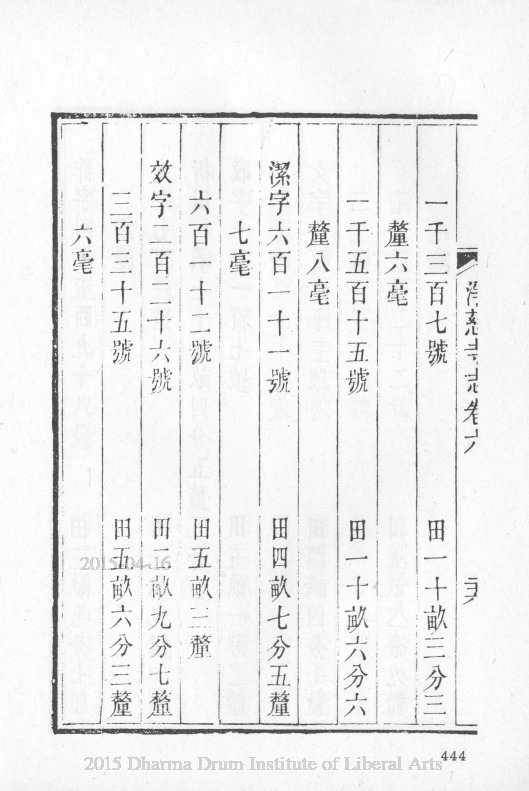 淨慈寺志卷六
一千三百七號 田一十畝三分三
釐六毫
一千五百十五號 田一十畝六分六
釐八毫
潔字六百一十一號 田四畝七分五釐
七毫
六百一十二號 田五畝三釐
效字二百二十六號 田二畝九分七釐
三百三十五號 田五畝六分三釐
六毫
444
2015-04-16
2015 Dharma Drum Institute of Liberal Arts